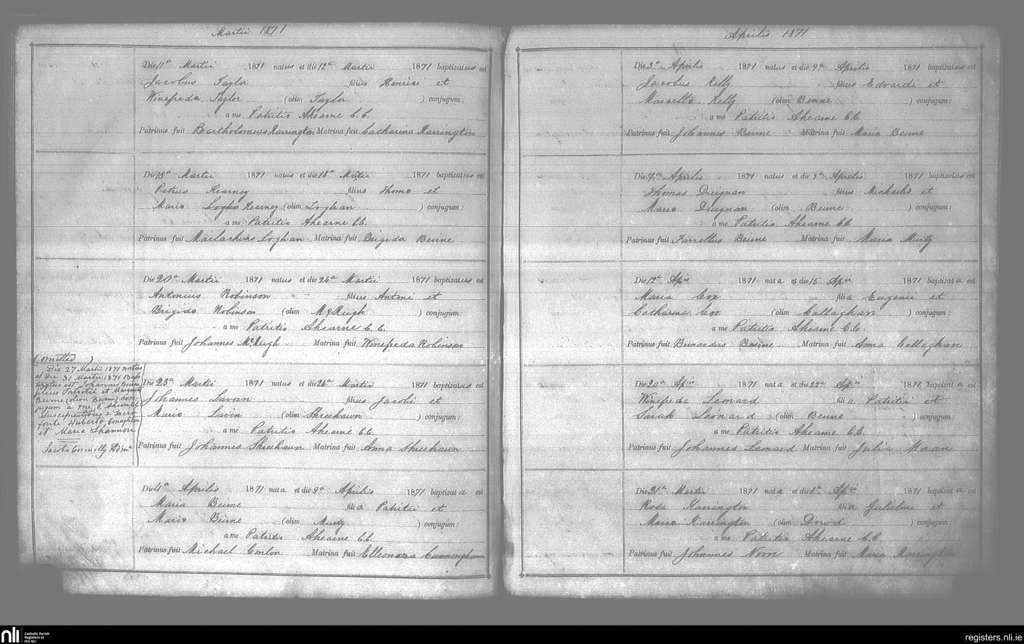 Martii 1871
Die 11ᵃ Martii 1871 natus et die 12ᵃ Martii 1871 baptizatus est
Jacobus Taylor filius Henrici et
Winefreda Taylor (olim Taylor) conjugum:
a me Patritio Ahearne C.C.
Patrinus fuit Bartholomeus Harrington Matrina fuit Catharina Harrington
Die 18ᵃ Martii 1871 natus et die 1871 baptizatus est
Petrus Kearney filius Thoma et
Maria Kearney (olim Loghan) conjugum:
a me Patritio Ahearne C.C.
Patrinus fuit Loghan Matrina fuit Brigida Beirne
Die 20ᵃ Martii 1871 natus et die 26ᵃ Martii 1871 baptizatus est
Antonius Robinson filius Antoni et
Brigida Robinson (olim McHugh) conjugum:
a me Patritio Ahearne C.C.
Patrinus fuit Johannes McHugh Matrina fuit Winefreda Robinson
(Omitted)
Die 27 Martii 1871 natus
et die 31 Martii 1871 Bap
tizatus est Johannes Beirne
filius Patritii et
Beirne (olim Beirne) con
jugum a me
Susceptoribus e Sacro
fonte Huberto
et Maria Shannon
Jacobus Connolly
Die 25ᵃ Martii 1871 natus et die 26ᵃ Martii 1871 baptizatus est
Johannes Lavan filius Jacobi et
Maria Lavin (olim Sheehaun) conjugum:
a me Patritio Ahearne C.C.
Patrinus fuit Johannes Sheehaun Matrina fuit Anna Sheehaun
Die 4ᵃ Aprilis 1871 nata et die 9ᵃ Aprilis 1871 baptizata est
Maria Beirne filia Patritii et
Maria Beirne (olim Murty) conjugum:
a me Patritio Ahearne C.C.
Patrinus fuit Michael Conlon Matrina fuit Elleonora Cunningham
Aprilis 1871
Die 3ᵃ Aprilis 1871 natus et die 9ᵃ Aprilis 1871 baptizatus est
Jacobus Kelly filius Edvardi et
Marcella Kelly (olim Beirne) conjugum:
a me Patritio Ahearne C.C.
Patrinus fuit Johannes Beirne Matrina fuit Maria Beirne
Die Aprilis 1871 natus et die 9ᵃ Aprilis 1871 baptizatus est
Thomas Duignan filius Michaelis et
Maria Duignan (olim Beirne) conjugum:
a me Patritio Ahearne C.C.
Patrinus fuit Farrellus Beirne Matrina fuit Maria Murty
Die 12ᵃ Apⁱˢ 1871 nata et die 15 Apⁱˢ 1871 baptizata est
Maria Cox filia Eugenii et
Catharina Cox (olim Callaghan) conjugum:
a me Patritio Ahearne C.C.
Patrinus fuit Beirne Matrina fuit Anna Callaghan
Die 20ᵃ Apⁱˢ 1871 nata et die 22ᵃ Apⁱˢ 1871 baptizata est
Winefreda Leonard filia Patritii et
Sarah Leonard (olim Beirne) conjugum:
a me Patritio Ahearne C.C.
Patrinus fuit Johannes Leonard Matrina fuit Julia
Die 21ᵃ Martii 1871 nata et die Apⁱˢ 1871 baptizata est
Rosa Harrington filia Gulielmi et
Maria Harrington (olim Dowd) conjugum:
a me Patritio Ahearne C.C.
Patrinus fuit Johannes Noon Matrina fuit Maria Harrington
nli
Catholic Parish
Registers at
the NLI
registers.nli.ie